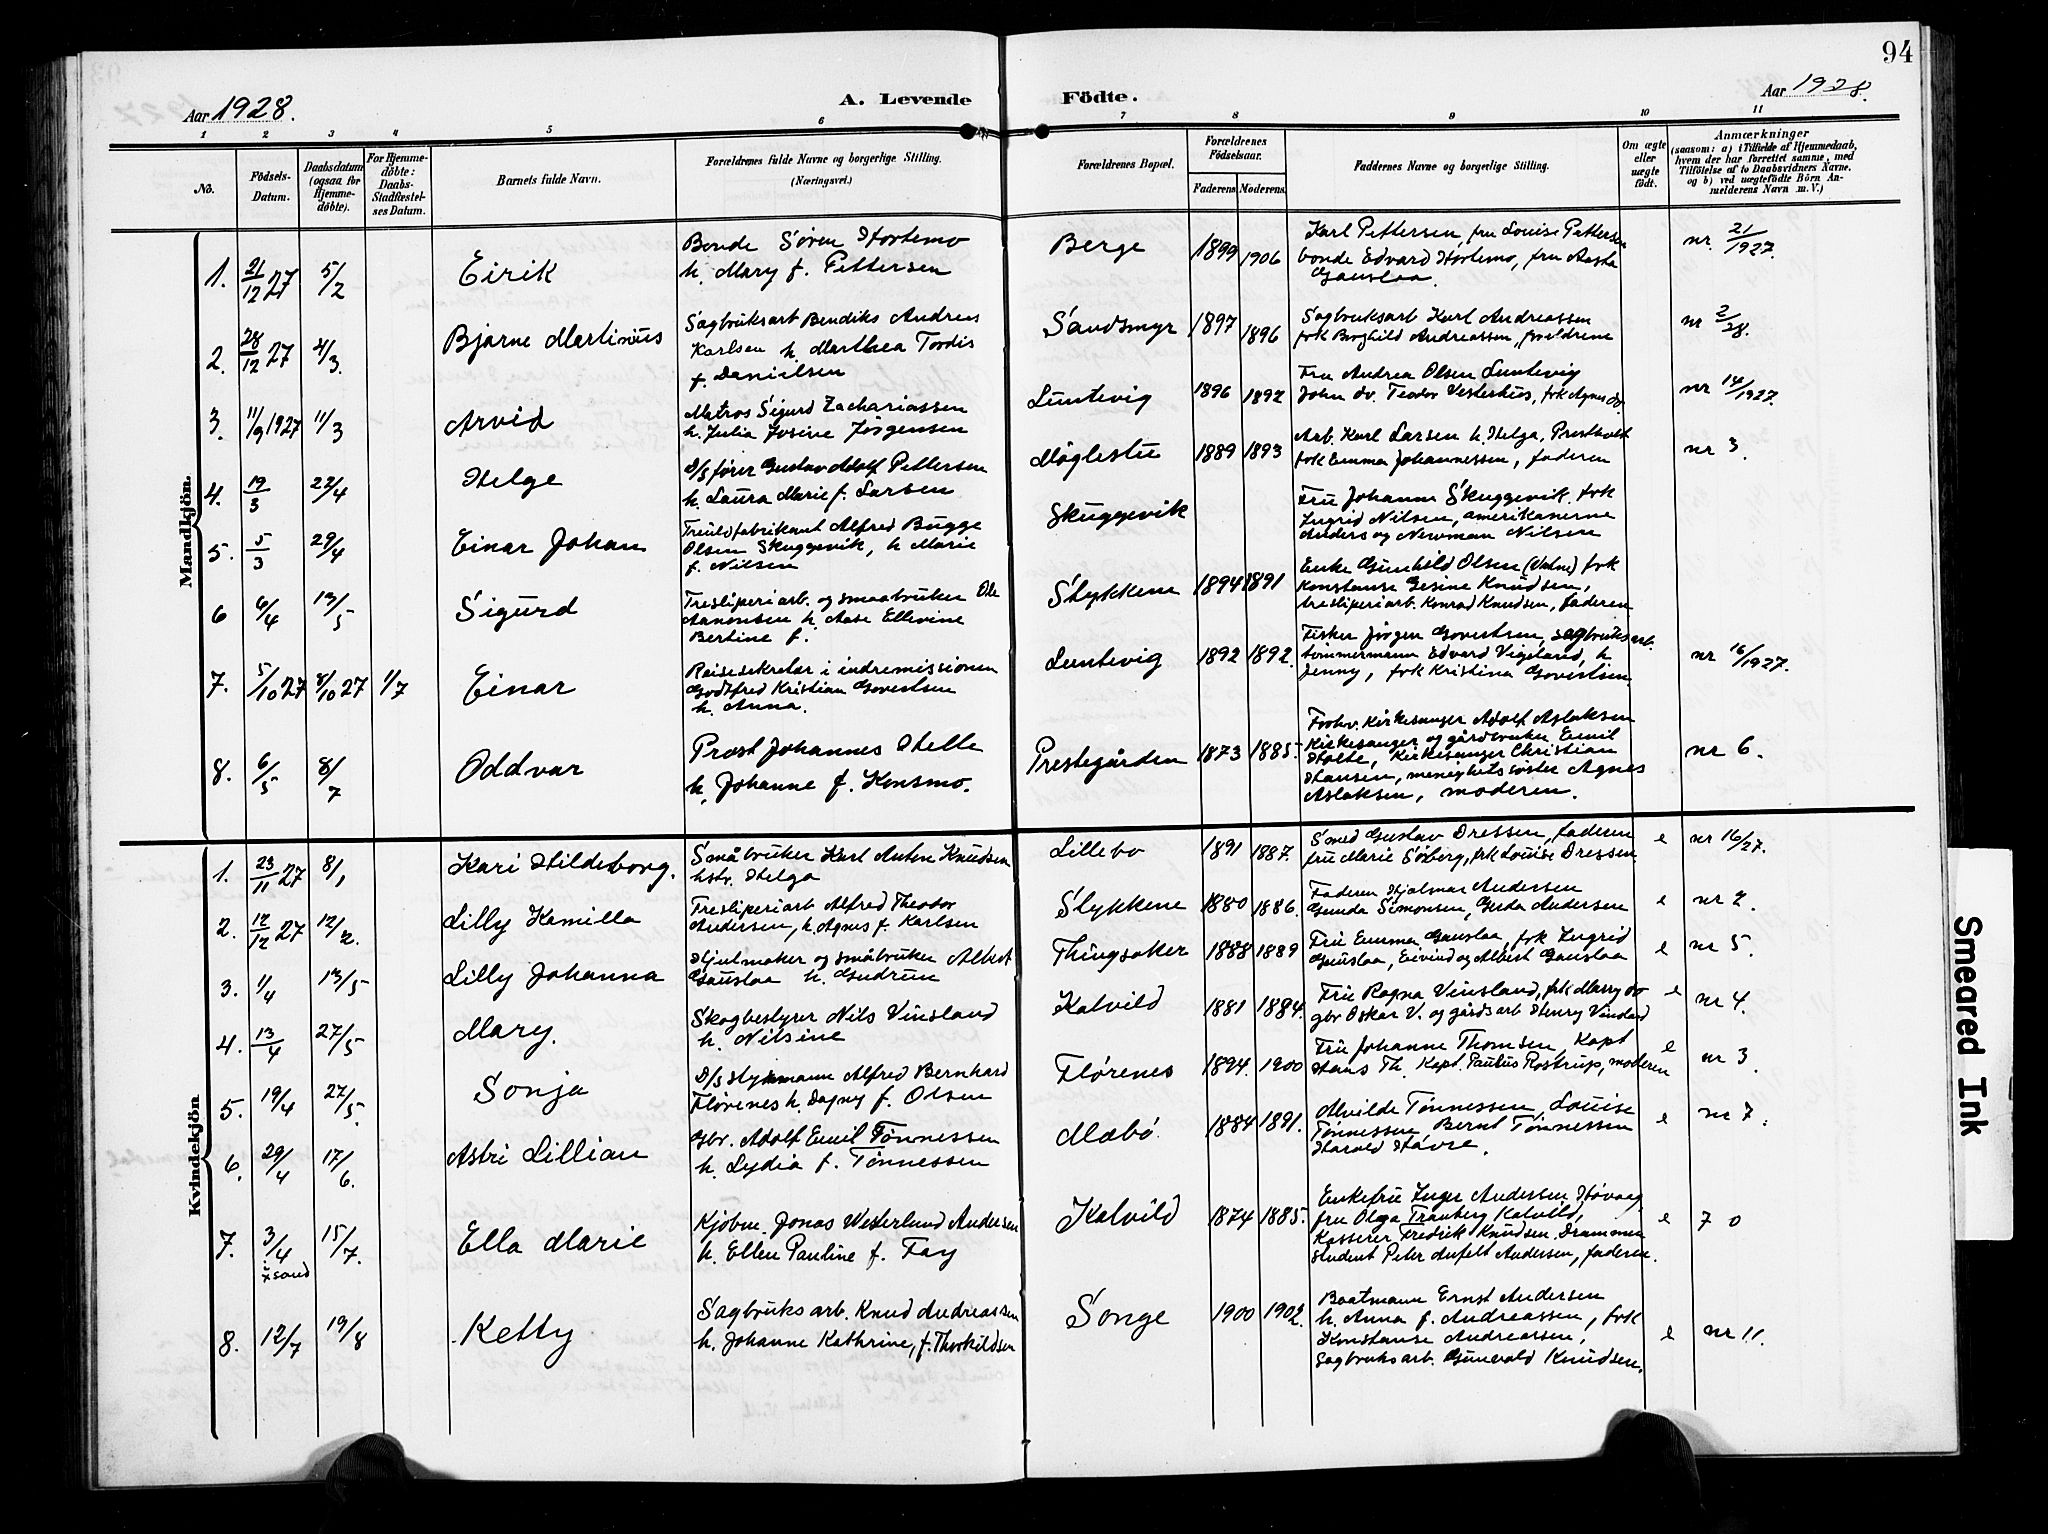 94
Aar 1928.
A. Levende
Födte.
Aar 1928.
1 2 3 4 5 6 7 8 9 10 11
No.
Födsels-
Datum.
Daabsdatum
(ogsaa for
Hjemme-
døbte).
For Hjemme-
døbte:
Daabs-
Stadfæstel-
ses Datum.
Barnets fulde Navn.
Forældrenes fulde Navne og borgerlige Stilling.
(Næringsvei.)
Forældrenes Bopæl.
Forældrenes
Födselsaar.
Faderens Moderens
Faddernes Navne og borgerlige Stilling.
Om ægte
eller
uægte
født.
Anmærkninger
(saasom: a) i Tilfælde af Hjemmedaab,
hvem der har forrettet samme, med
Tilföielse af to Daabsvidners Navne,
og b) ved uægtefödte Börn An-
melderens Navn m. V.)
Mandkjön.
1. 21/12 27 5/2 Eirik
Bonde Søren Hortemo
h. Mary f. Pettersen
Berge 1899 1906
Karl Pettersen, fru Louise Pettersen
bonde Edvard Hortemo, fru Aasta
Gauslaa.
nr. 21/1927.
2. 28/12 27 4/3. Bjarne Martinius
Sagbruksarb Bendiks Andreas
Karlsen h. Marthea Tordis
f. Danielsen
Sandsmyr 1897 1896
Sagbruksarb Karl Andreassen
frk Borghild Andreassen, foreldrene
nr 2/28.
3. 11/9 1927 11/3 Arvid
Matros Sigurd Zachariassen
h. Julia Josine Jørgensen
Luntevig 1896 1892
Fru Andrea Olsen Luntevig
John do. Teodor Vesterhus, frk Agnes do
nr 14/1927.
4. 19/3 22/4 Helge
D/S fører Gustav Adolf Pettersen
h. Laura Marie f. Larsen
Møglestu 1889 1893
Arb. Karl Larsen h. Helga, Prestholt
frk Emma Johannessen, faderen
nr 3.
5. 5/3 29/4 Einar Johan
Treuldfabrikant Alfred Bugge
Olsen Skuggevik, h Marie
f. Nilsen
Skuggevik
Fru Johanne Skuggevik, frk
Ingrid Nilsen, amerikanerne
Anders og Newman Nilsen
6 6/4 13/5 Sigurd
Tresliperiarb. og smaabruker Ole
Aanonsen h. Aase Ellevine
Bertine f.
Stykkene 1894 1891
Enke Gunhild Olsen (Valne) frk
Konstanse Gesine Knudsen,
tresliperiarb. Konrad Knudsen, faderen
7. 5/10 27 8/10 27 1/7 Einar
Reisesekretær i indremissionen
Godtfred Kristian Govertsen
h. Anna.
Luntevig 1892 1892.
Fisker Jørgen Govertsen, sagbruksarb.
tømmermann Edvard Vigeland, h
Jenny, frk Kristina Govertsen.
nr 16/1927.
8. 6/5 8/7 Oddvar
Prost Johannes Helle
h. Johanne f. Konsmo.
Prestegården 1873 1885.
Forhv. Kirkesanger Adolf Aslaksen
Kirkesanger og gårdbruker Emil
Holte, Kirkesanger Christian
Hansen, menighetssøster Agnes
Aslaksen, moderen.
nr 6.
Kvindekjön
1. 23/11 27 8/1 Kari Hildeborg.
Småbruker Karl Anton Knudsen
hstr. Helga
Lillebo 1891 1887.
Smed Gustav Dressen, faderen
fru Marie Søberg, frk Louise Dressen
e nr 16/27.
2. 12/12 27 12/2. Lilly Kamilla
Tresliperiarb Alfred Theodor
Andersen, h. Agnes f. Karlsen
Stykkene 1880 1886.
Faderen Hjalmar Andersen
Gunda Simonsen, Gerda Andersen
e nr 2.
3. 1/4 13/5 Lilly Johanna
Hjulmaker og småbruker Albert
Gauslaa h. Gudrun
Thingsaker 1888 1889
Fru Emma Gauslaa, frk Ingrid
Gauslaa, Eivind og Albert Gauslaa
e nr 5.
4. 13/4 27/5 Mary.
Skogbestyrer Nils Vinsland
h. Nilsine
Kalvild 1881 1884.
Fru Ragna Vinsland, frk Marry do
gbr Oskar V. og gårdsarb Henry Vinsland
e nr 4.
5. 19/4 27/5. Sonja
D/S styrmann Alfred Bernhard
Flørenes h. Dagny f. Olsen
Flørenes 1894. 1900
Fru Johanne Thomsen, Kapt
Hans Th. Kapt. Paulus Rostrup, moderen
e nr 3.
6. 29/4 17/6. Astri Lillian
Gbr. Adolf Emil Tønnessen
h. Lydia f. Tønnessen
Mæbø 1884 1891.
Alvilde Tønnessen, Louise
Tønnessen Bernt Tønnessen
Harold Håvre.
e nr 7.
7. 3/4 15/7. Ella Marie
Kjøbm. Jonas Westerlund Andersen
h. Ellen Pauline f. Fay
Kalvild 1874 1885.
Enkefru Inger Andersen Høvaag,
fru Olga Tranberg Kalvild,
Kasserer Fredrik Knudsen Drammen
student Peter Anfelt Andersen, faderen.
e 7 0
8. 12/7 19/8 Ketty
Sagbruksarb. Knud Andreassen
h. Johanne Kathrine, f. Thorkildsen
Songe 1900 1902.
Baatmann Ernst Andersen
h. Anna f. Andreassen, frk
Konstanse Andreassen,
Sagbruksarb. Gunvald Knudsen.
e nr 11.
Smeared Ink